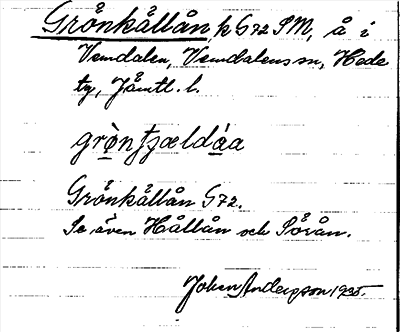 Grönkållån, k G72 SM, å i
Vemdalen, Vemdalens sn, Hede
tg, Jämtl. l.
Grönkållån G72.
Se även Hållån och Söån.
Johan Andersson 1935.